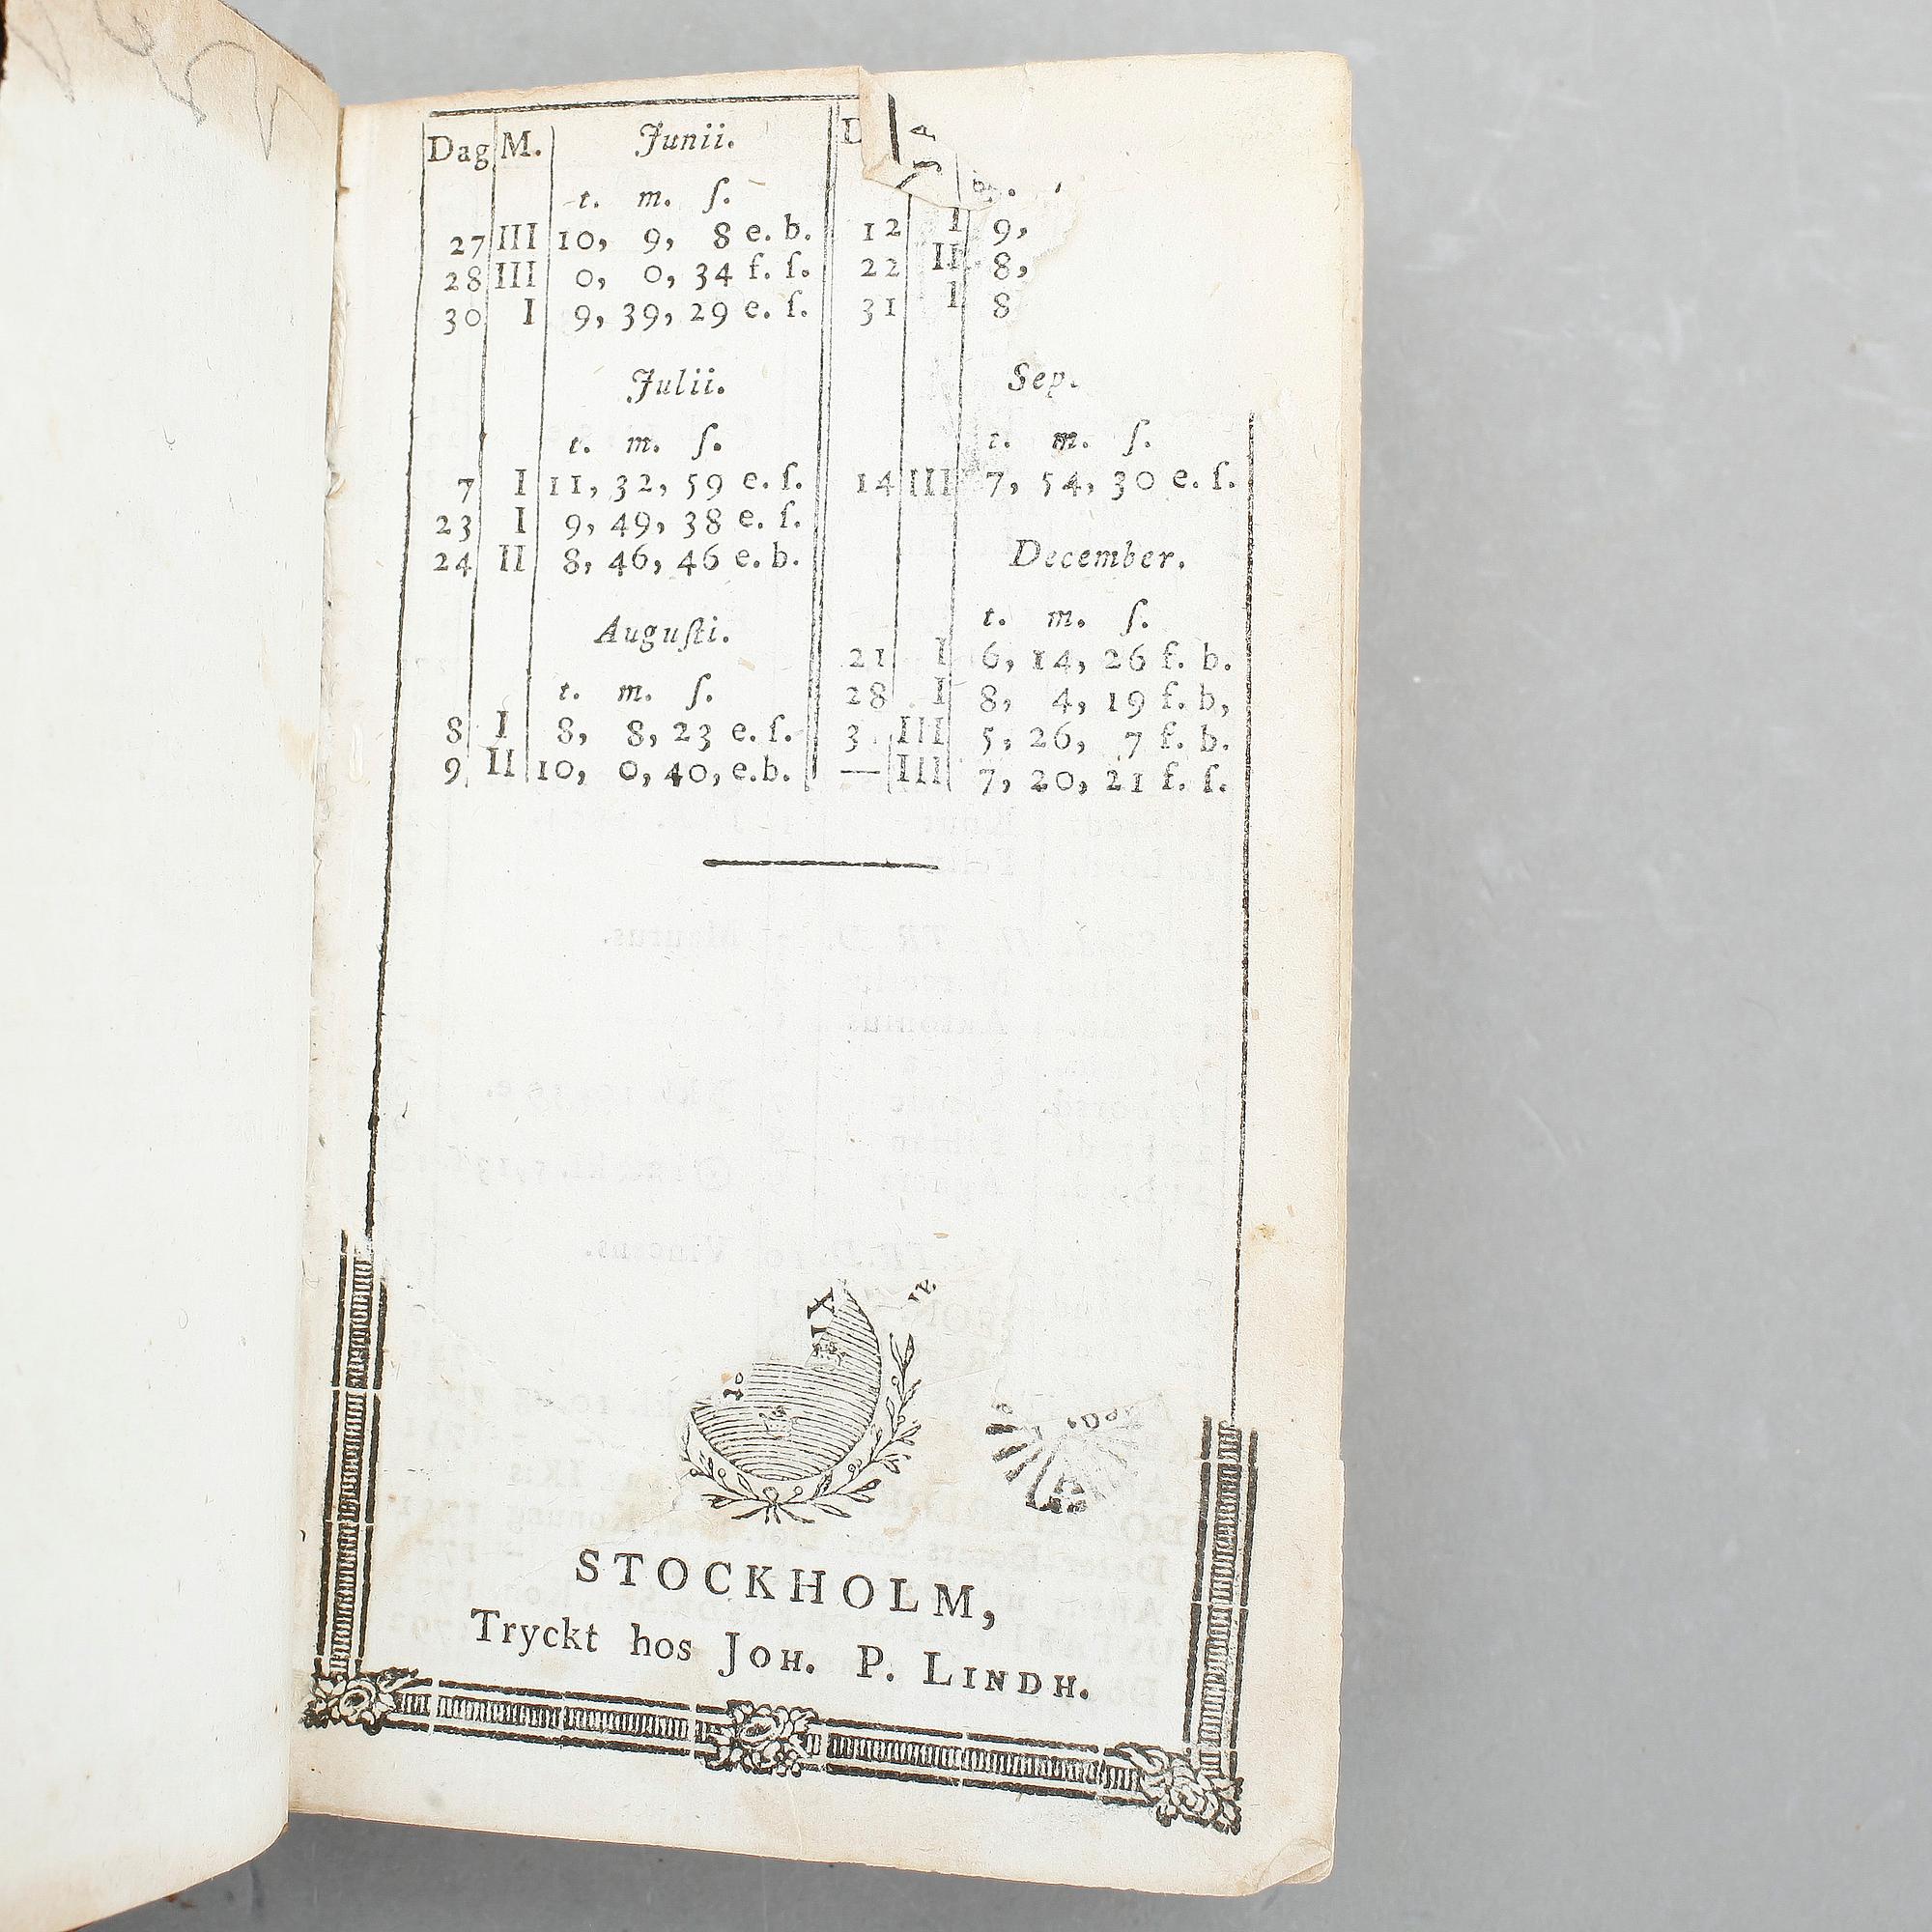 Dag M. Junii.
t. m. ſ.
27 III 10, 9, 8 e. b.
28 III 0, 0, 34 f. ſ.
30 I 9, 39, 29 e. ſ.
Julii.
t. m. ſ.
7 I 11, 32, 59 e. ſ.
23 I 9, 49, 38 e. ſ.
24 II 8, 46, 46 e. b.
Auguſti.
t. m. ſ.
8 I 8, 8, 23 e. ſ.
9 II 10, 0, 40, e.b.
12 I 9,
22 II 8,
31 I 8
Sep.
t. m. ſ.
14 III 7, 54, 30 e. ſ.
December.
t. m. ſ.
21 I 6, 14, 26 f. b.
28 I 8, 4, 19 f. b,
3 III 5, 26, 7 f. b.
— III 7, 20, 21 f. ſ.
STOCKHOLM,
Tryckt hos JOH. P. LINDH.